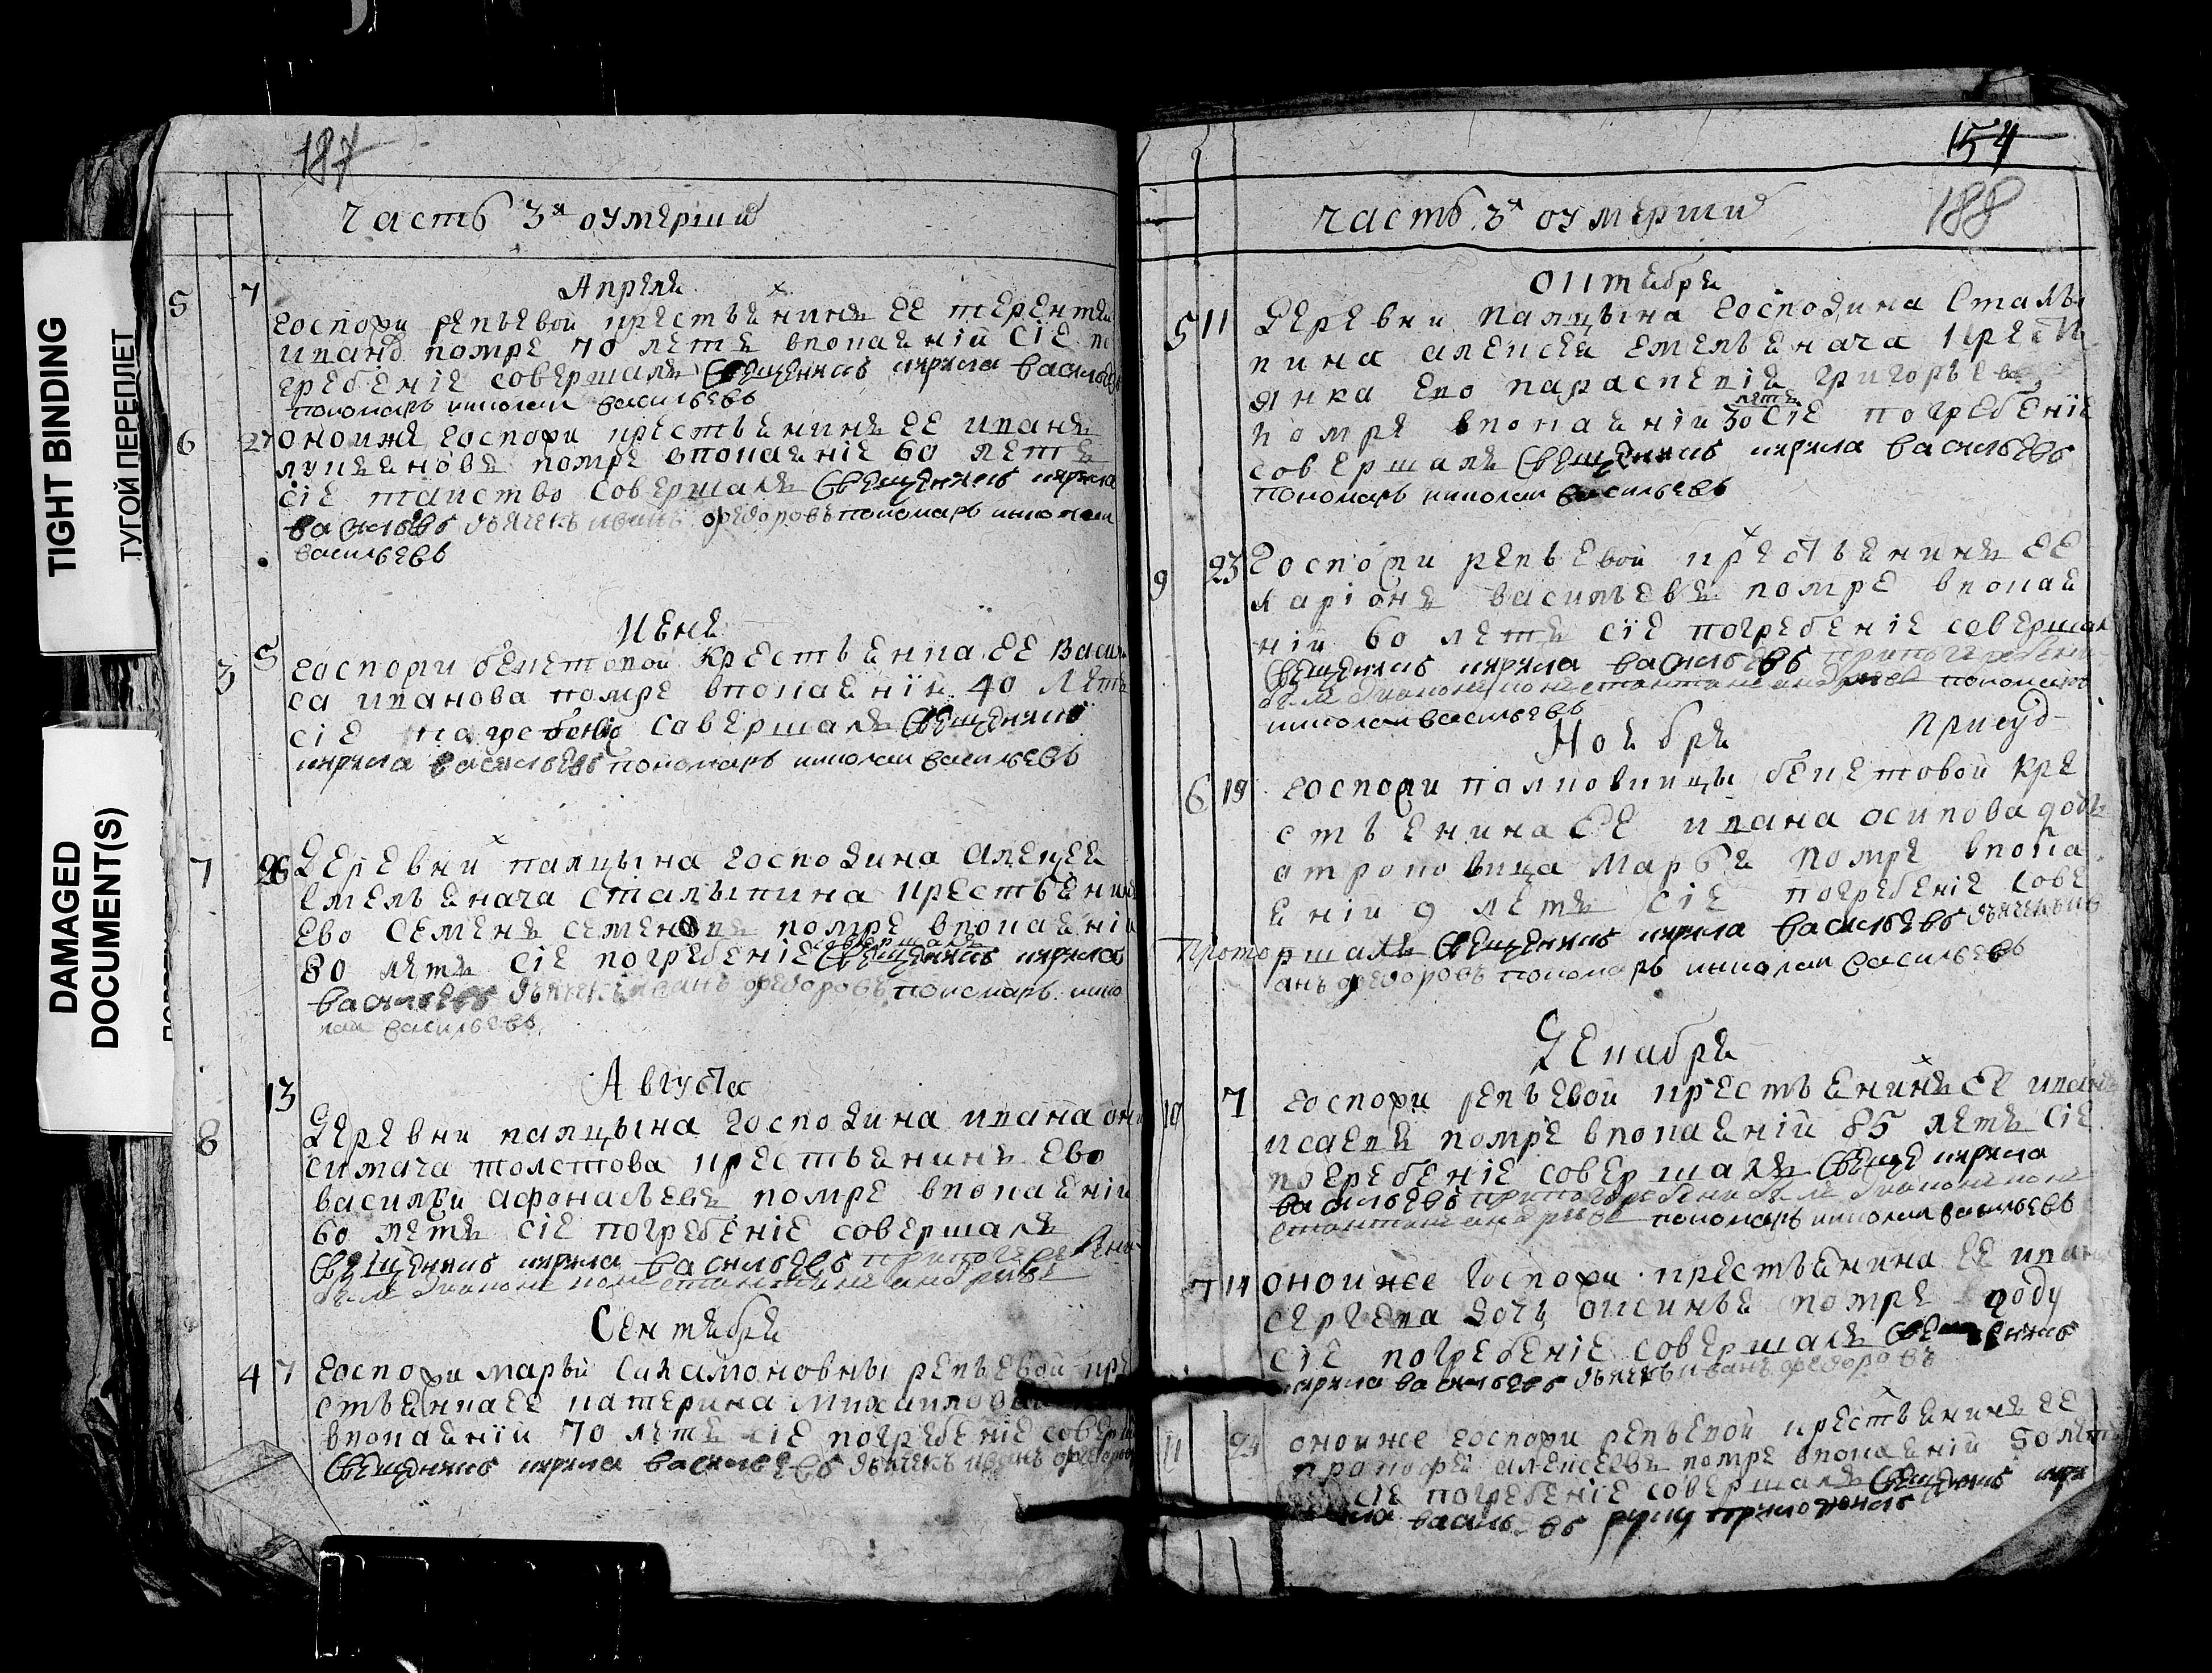 TIGHT BINDING
ТУГОЙ ПЕРЕПЛЕТ
DAMAGED
DOCUMENT(S)
187
Часть 3я оумерши
Апреля
5 7 госпожи репьевой крестьянинъ ее терентеи
ивановъ помре 70 летъ впокаянии сіе по
гребеніе совершалъ Священникъ кирила васильевъ
пономарь николаи васильевъ
6 27 оноиже госпожи крестьянинъ ее иванъ
помре впокаяніе 60 летъ
сіе таиство совершалъ Священникъ кирила
васильевъ дьячекъ иванъ федоровъ пономарь николаи
васильевъ
Июня
3 5 госпожи бекетовой крестьянка ее васи
са иванова помре впокаяніи 40 летъ
сіе погребеніе савершалъ Священникъ
кирила васильевъ пономарь николаи васильевъ
7 26 Деревни палцына господина алексея
Емельянача сталыпина крестьянинъ
Ево Семенъ семеновъ помре впокаяніи
80 летъ сіе погребеніе совершалъ Священникъ кирила
васильевъ дьячекъ иванъ федоровъ пономарь нико
лаи васильевъ
Августа
8 13 Деревни палцына господина ивана они
симача толстова крестьянинъ Ево
василеи афонасьевъ помре впокаяніи
60 летъ сіе погребеніе совершалъ
Священникъ кирила васильевъ припогребени
былъ диаконъ констянтинъ андреевъ
Сентября
4 7 госпожи марьи Силамоновны репьевой кре
стьянка ее катерина михаилова
впокаяніи 70 летъ сіе погребеніе соверш
Священникъ кирила васильевъ дьячекъ иванъ федоровъ
154
188
часть 3я оумерши
Октября
5 11 Деревни палцына господина Сталы
пина алексея емельянача крестья
янка ево параскевія григорьева
помре впокаяніи 30 летъ сіе погребеніе
совершалъ Священникъ кирила васильевъ
пономарь николаи васильевъ
9 23 Госпожи репьевой крестьянинъ ее
ларіонъ васильевъ помре впокая
ніи 60 летъ сіе погребеніе совершалъ
Священникъ кирила васильевъ припогребени
былъ диаконъ констянтинъ андреевъ пономарь
николаи васильевъ
Ноября
6 19 госпожи полковницы бекетовой кре
стьянина ее ивана осипова дочь
отроковица марья помре впока
яніи 9 летъ сіе погребеніе сове
ршалъ Священникъ кирила васильевъ дьячекъ ив
анъ федоровъ пономарь николаи васильевъ
Декабря
10 7 госпожи репьевой крестьянинъ ее иванъ
исаевъ помре впокаяніи 85 летъ сіе
погребеніе совершалъ Свяще кирила
васильевъ припогребени былъ диаконъ кон
стянтинъ андреевъ пономарь николаи васильевъ
7 14 оноиже госпожи крестьянина ее ивана
сергеева дочь оксинья помре году
сіе погребеніе совершалъ Священникъ
кирила васильевъ дьячекъ иванъ федоровъ
11 24 оноиже госпожи репьевой крестьянинъ ее
прокофеи алексеевъ помре впокаяніи 50 летъ
сіе погребеніе совершалъ Священникъ кири
васильевъ руку приложилъ